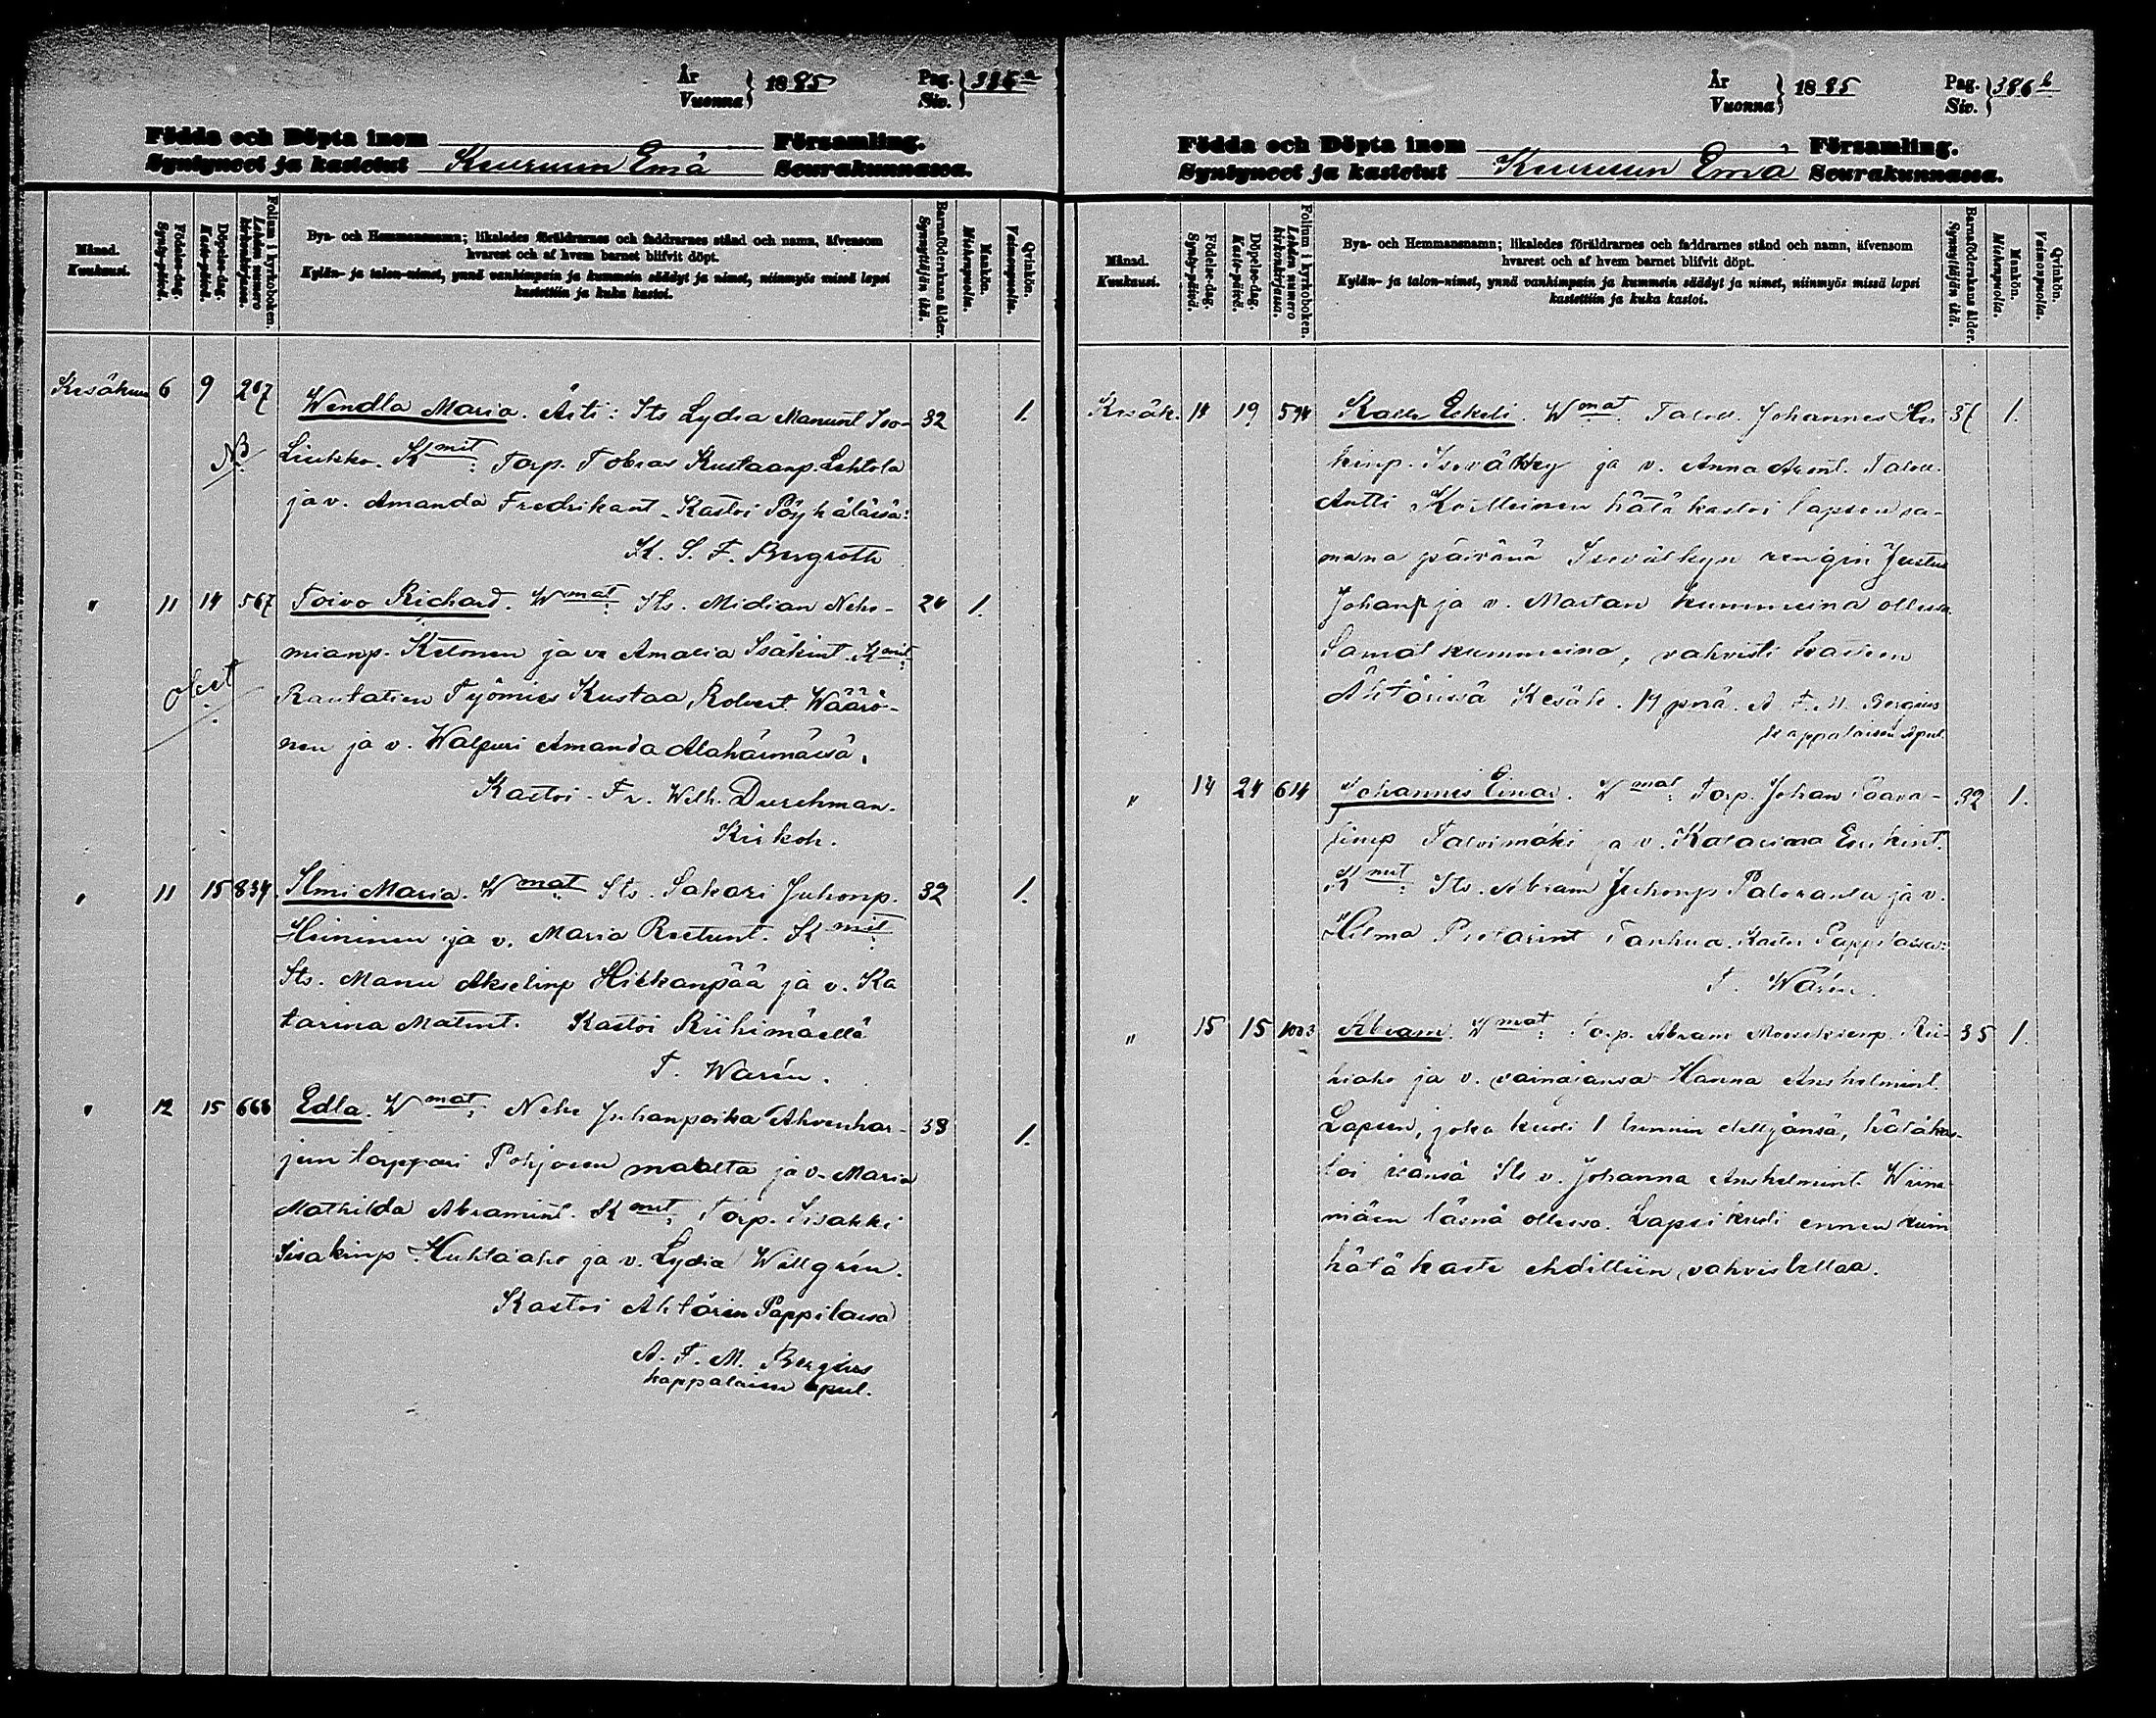 År
Vuonna } 1885
Pag.
Siv. } 386 a
Födda och Döpta inom Församling.
Syntyneet ja kastetut Kuuruun Emä Seurakunnassa.
Månad.
Kuukausi.
Födelse-dag.
Synty-päivä.
Döpelse-dag.
Kaste-päivä.
Folium i kyrkoboken.
Lehden numero
kirkonkirjassa.
Bya- och Hemmansnamn; likaledes föräldrarnes och faddrarnes stånd och namn, äfvensom
hvarest och af hvem barnet blifvit döpt.
Kylän- ja talon-nimet, ynnä vanhimpain ja kummein säädyt ja nimet, niinmyös missä lapsi
kastettiin ja kuka kastoi.
Barnaföderskans ålder.
Synnyttäjän ikä.
Mankön.
Miehenpuolia.
Qvinkön.
Vaimonpuolia.
Kesäkuu 6 9 267 Wendla Maria. Äiti: Its Lydia Manunt Iso- 32 1.
NB Liukko. K mit: Torp. Tobias Kustaanp. Lehtola
ja v. Amanda Fredrikant. Kastoi Pöyhälässä:
K. S. F. Bergroth
" 11 14 567 Toivo Richard. W mat: Its. Midian Nehe- 24 1.
mianp. Ketonen ja v. Amalia Isakint. K mit:
Rautatien Työmies Kustaa Robert Wäärö-
nen ja v. Walpuri Amanda Alahärmässä.
Kastoi Fr. Wilh. Durchman.
Kirkoh.
" 11 15 834 Ilmi Maria. W mat Its. Sakari Juhonp. 32 1.
Heininen ja v. Maria Reetunt. K mit:
Its. Manu Akselinp Hiekanpää ja v. Ka
tarina Matint. Kastoi Riihimäellä
T. Warén.
" 12 15 668 Edla. W mat: Nehe Juhanpoika Ahvenhar- 38 1.
jun torppari Pohjosen maalta ja v. Maria
Mathilda Abramint. K mit: Torp. Iisakki
Iisakinp Huhtaaho ja v. Lydia Willgrén.
Kastoi Ähtärin Pappilassa
A. F. M. Bergius
kappalaisen apul.
År
Vuonna } 1885
Pag.
Siv. } 386 b
Födda och Döpta inom Församling.
Syntyneet ja kastetut Kuuruun Emä Seurakunnassa.
Månad.
Kuukausi.
Födelse-dag.
Synty-päivä.
Döpelse-dag.
Kaste-päivä.
Folium i kyrkoboken.
Lehden numero
kirkonkirjassa.
Bya- och Hemmansnamn; likaledes föräldrarnes och faddrarnes stånd och namn, äfvensom
hvarest och af hvem barnet blifvit döpt.
Kylän- ja talon-nimet, ynnä vanhimpain ja kummein säädyt ja nimet, niinmyös missä lapsi
kastettiin ja kuka kastoi.
Barnaföderskans ålder.
Synnyttäjän ikä.
Mankön.
Miehenpuolia.
Qvinkön.
Vaimonpuolia.
Kesäk. 14 19 594 Kalle Eskeli. W mat. Talol. Johannes Hei 37 1.
kinp. Isoválkky ja v. Anna Talol.
Antti hätäkastoi lapsen sa-
mana päivänä rengin Justus
Johanp ja v. Martan kummeina ollessa.
Samat kummeina, vahvisti kasteen
Ähtärissä Kesäk. 19 pnä. A. F. M. Bergius
kappalaisen apul.
" 14 24 614 Johannes Einar. W mat: Torp. Johan Taava- 32 1.
tinp Talvimäki ja v. Katariina Erikint.
K mit: Its. Abram Juhonp Paloranta ja v.
Hilma Pietarint Tanhua. Kastoi Pappilassa:
T. Warén.
" 15 15 1003 Abram. W mat: Torp. Abram Rii- 35 1.
hiaho ja v. vainajansa Hanna Anshelmint.
Lapsen, joka kuoli 1 tunnin elettyänsä, hätäkas-
toi Its v. Johanna Anshelmint. Wiina
mäen läsnä ollessa. Lapsi kuoli ennen kuin
hätäkaste ehdittiin vahvistettaa.